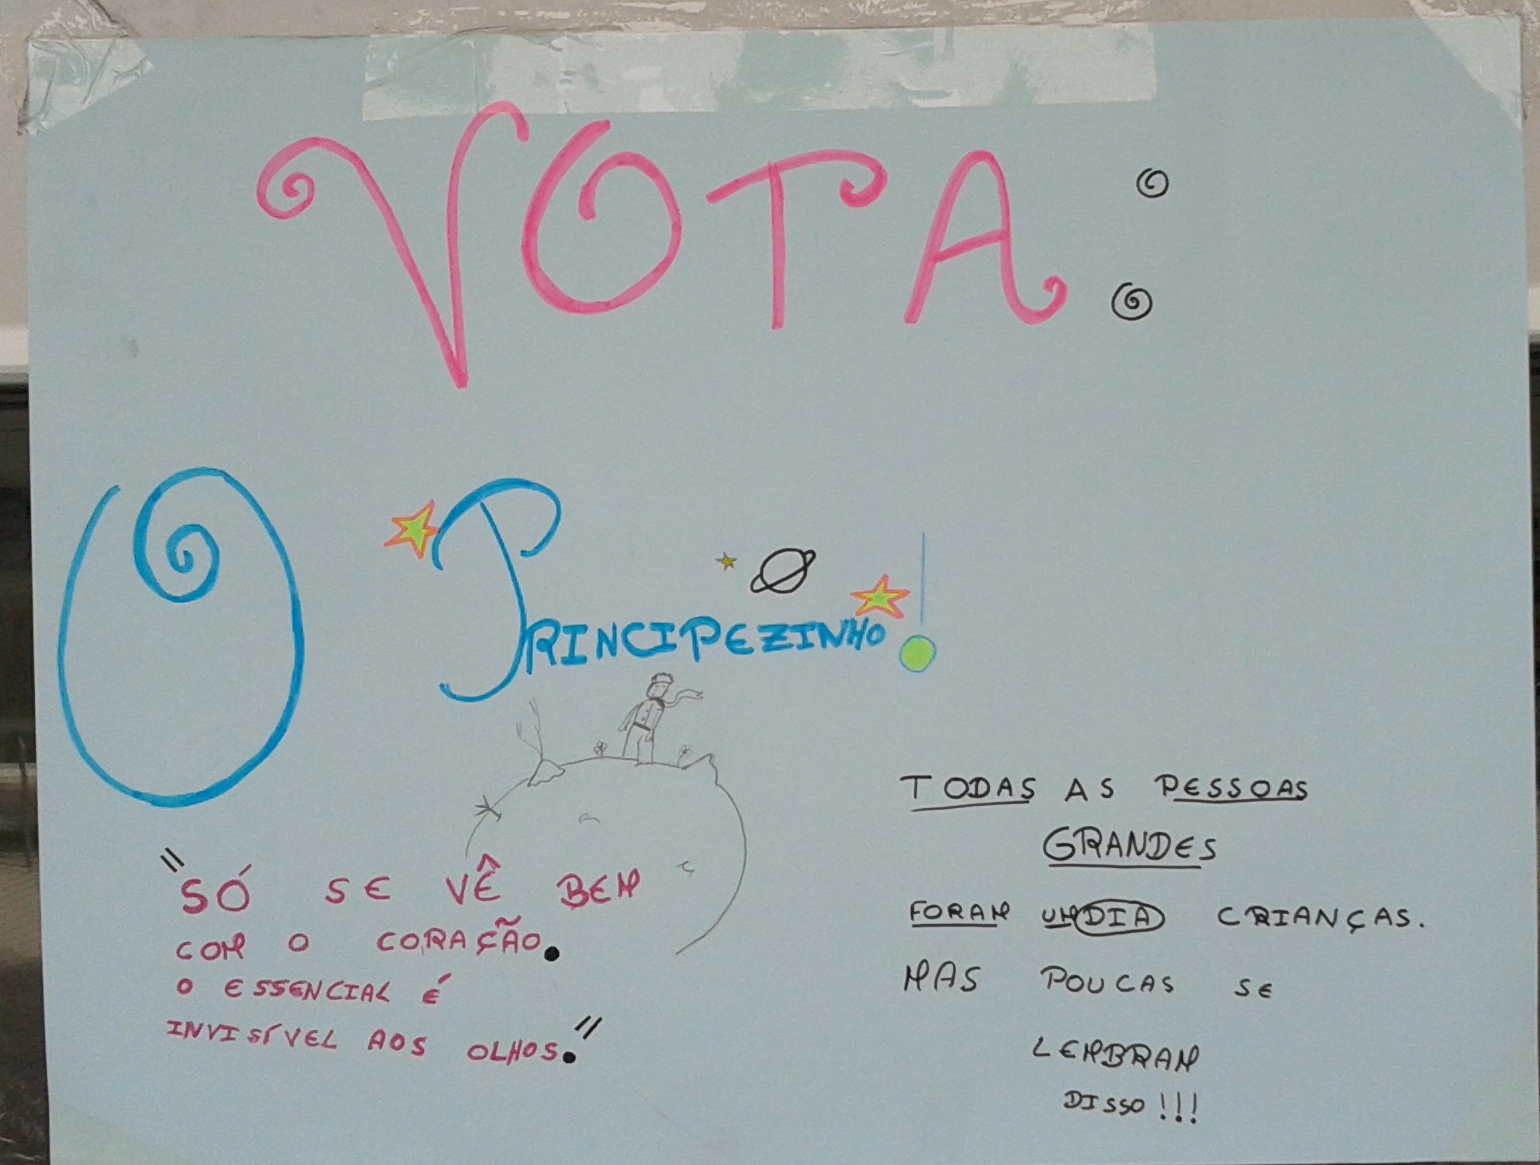 VOTA:
O PRINCIPEZINHO!
"SÓ SE VÊ BEM
COM O CORAÇÃO.
O ESSENCIAL É
INVISÍVEL AOS OLHOS."
TODAS AS PESSOAS
GRANDES
FORAM UM DIA CRIANÇAS.
MAS POUCAS SE
LEMBRAM
DISSO!!!